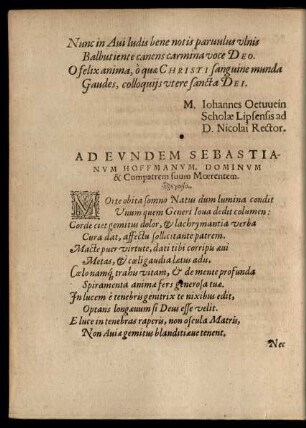 Nunc in Aui ludis bene notis paruulus vlnis
Balbutiente canens carmina voce DEO.
O felix anima, ò quæ CHRISTI sanguine munda
Gaudes, colloquijs vtere sancta DEI.
M. Iohannes Oetuuein
Scholæ Lipsensis ad
D. Nicolai Rector.
AD EVNDEM SEBASTIA-
NVM HOFFMANVM, DOMINVM
& Compatrem suum Mœrentem.
MOrte obita somno Natus dum lumina condit
Vnum quem Generi Ioua dedit columen:
Corde ciet gemitus dolor, & lachrymantia verba
Cura dat, affectu sollicitante patrem.
Macte puer virtute, dati tibi corripis æui
Metas, & cœli gaudia lætus adis.
Cælo namq; trahis vitam, & de mente profunda
Spiramenta anima fers generosa tuæ.
In lucem è tenebris genitrix te nixibus edit,
Optans longæuum si Deus esse velit.
E luce in tenebras raperis, non oscula Matris,
Non Auiæ gemitus blanditiæue tenent.
Nec